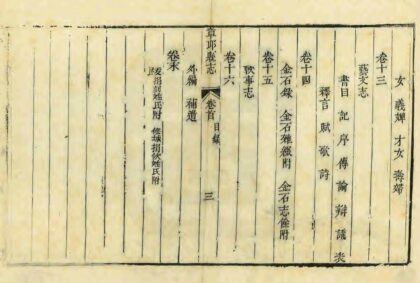 女 義婢 才女 壽婦
卷十三
藝文志
書目 記 序 傳 論 辯 議 表
釋言 賦 歌 詩
卷十四
金石錄 金石雜綴附 金石志餘附
卷十五
軼事志
卷十六
外編 補遺
卷末
捐刻姓氏附 修城捐伙姓氏附
章邱縣志 卷首 目錄 三